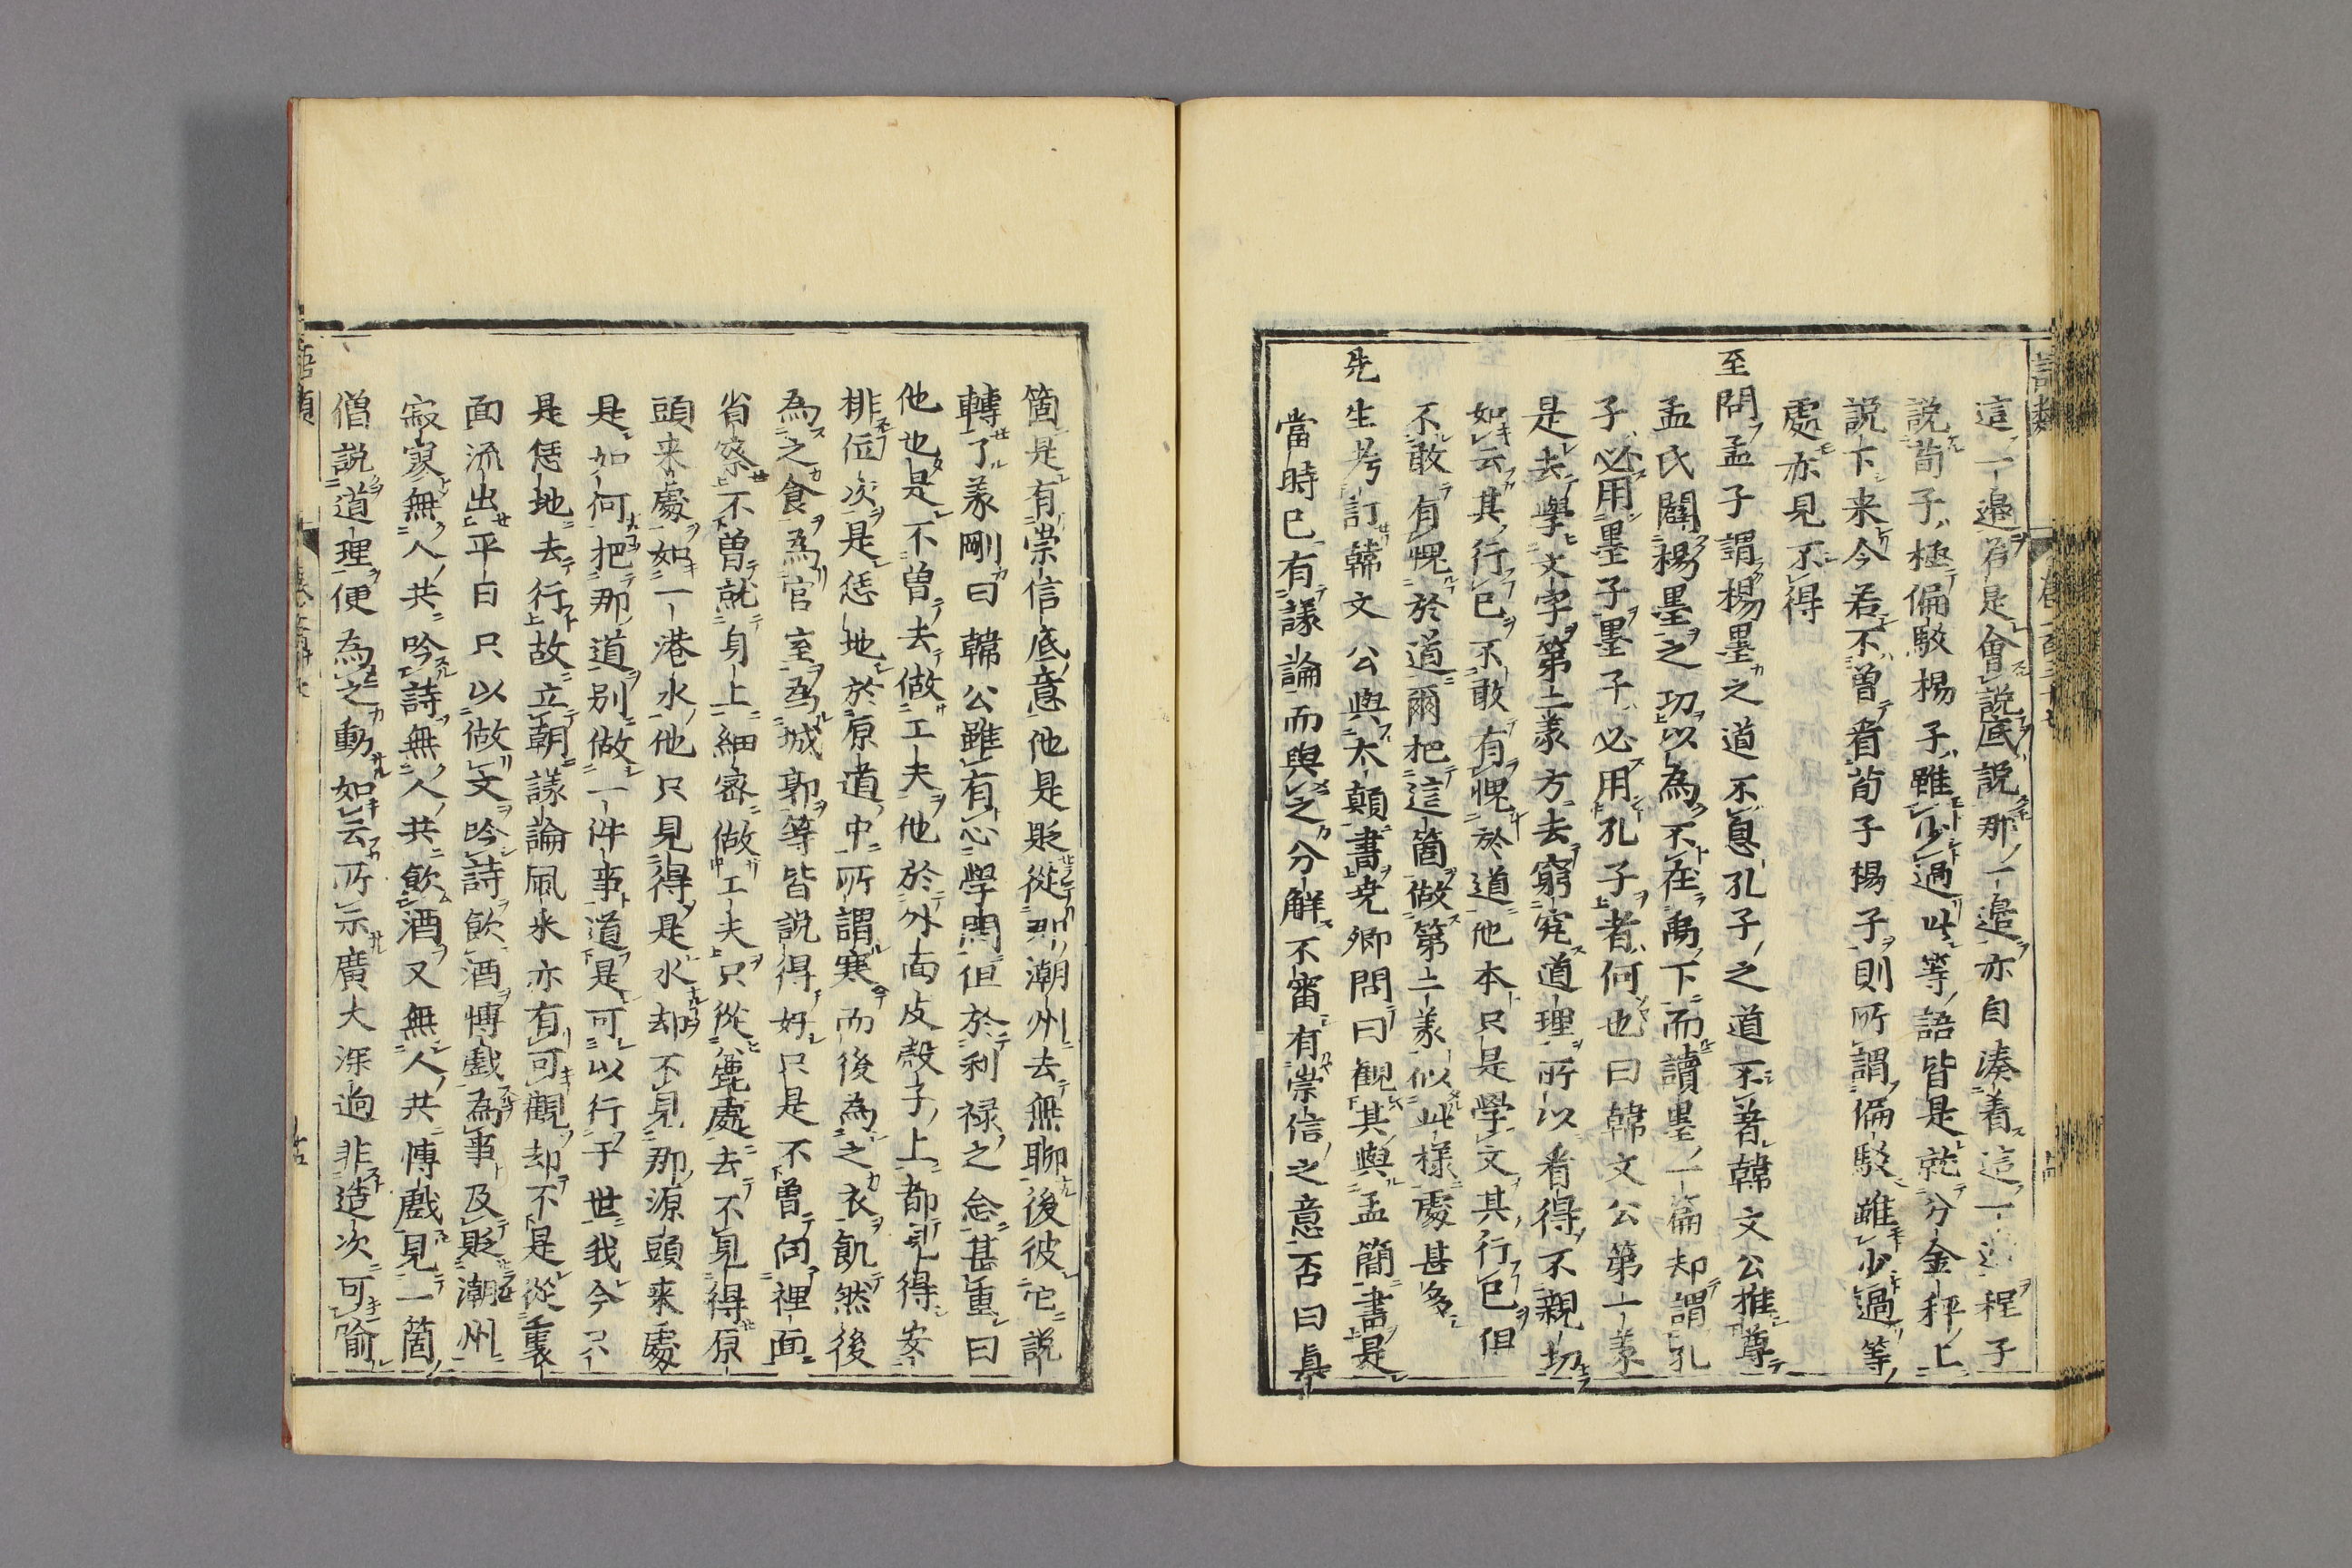 語類
這一邉若是會説底説那一邉亦自湊着這一邉程子
説荀子極偏駁楊子雖少過此等語皆是就分金秤上
説下来今若不曽看荀子楊子則所謂偏駁雖少過等
處亦見不得
至問孟子謂楊墨之道不息孔子之道不著韓文公推尊
孟氏闢楊墨之功以為不在禹下而讀墨一篇却謂孔
子必用墨子墨子必用孔子者何也曰韓文公第一義
是去學文字第二義方去窮究道理所以看得不親切
如云其行已不敢有愧於道他本只是學文其行已但
不敢有愧於道爾把這箇做第二義似此様處甚多
先生考訂韓文公與太顛書堯卿問曰觀其與孟簡書是
當時已有議論而與之分解不審有崇信之意否曰真
箇是有崇信底意他是貶從那潮州去無聊後彼它説
轉了義剛曰韓公雖有心學問但於利祿之念甚重曰
他也是不曽去做工夫他於外面皮殻子上都見得安
排位次是恁地於原道中所謂寒而後為之衣飢然後
為之食為官室為城郭等皆説得好只是不曽向裡面
省察不曽就身上細宻做工夫只從麄處去不見得原
頭来處如一港水他只見得是水却不見那源頭来處
是如何把那道别做一件事道是可以行于世我今只
是恁地去行故立朝議論風米亦有可觀却不是從裏
面流出平日只以做文吟詩飲酒愽戲為事及貶潮州
寂寥無人共吟詩無人共飲酒又無人共愽戲見一箇
僧説道理便為之動如云所示廣大深逈非造次可喻
語類